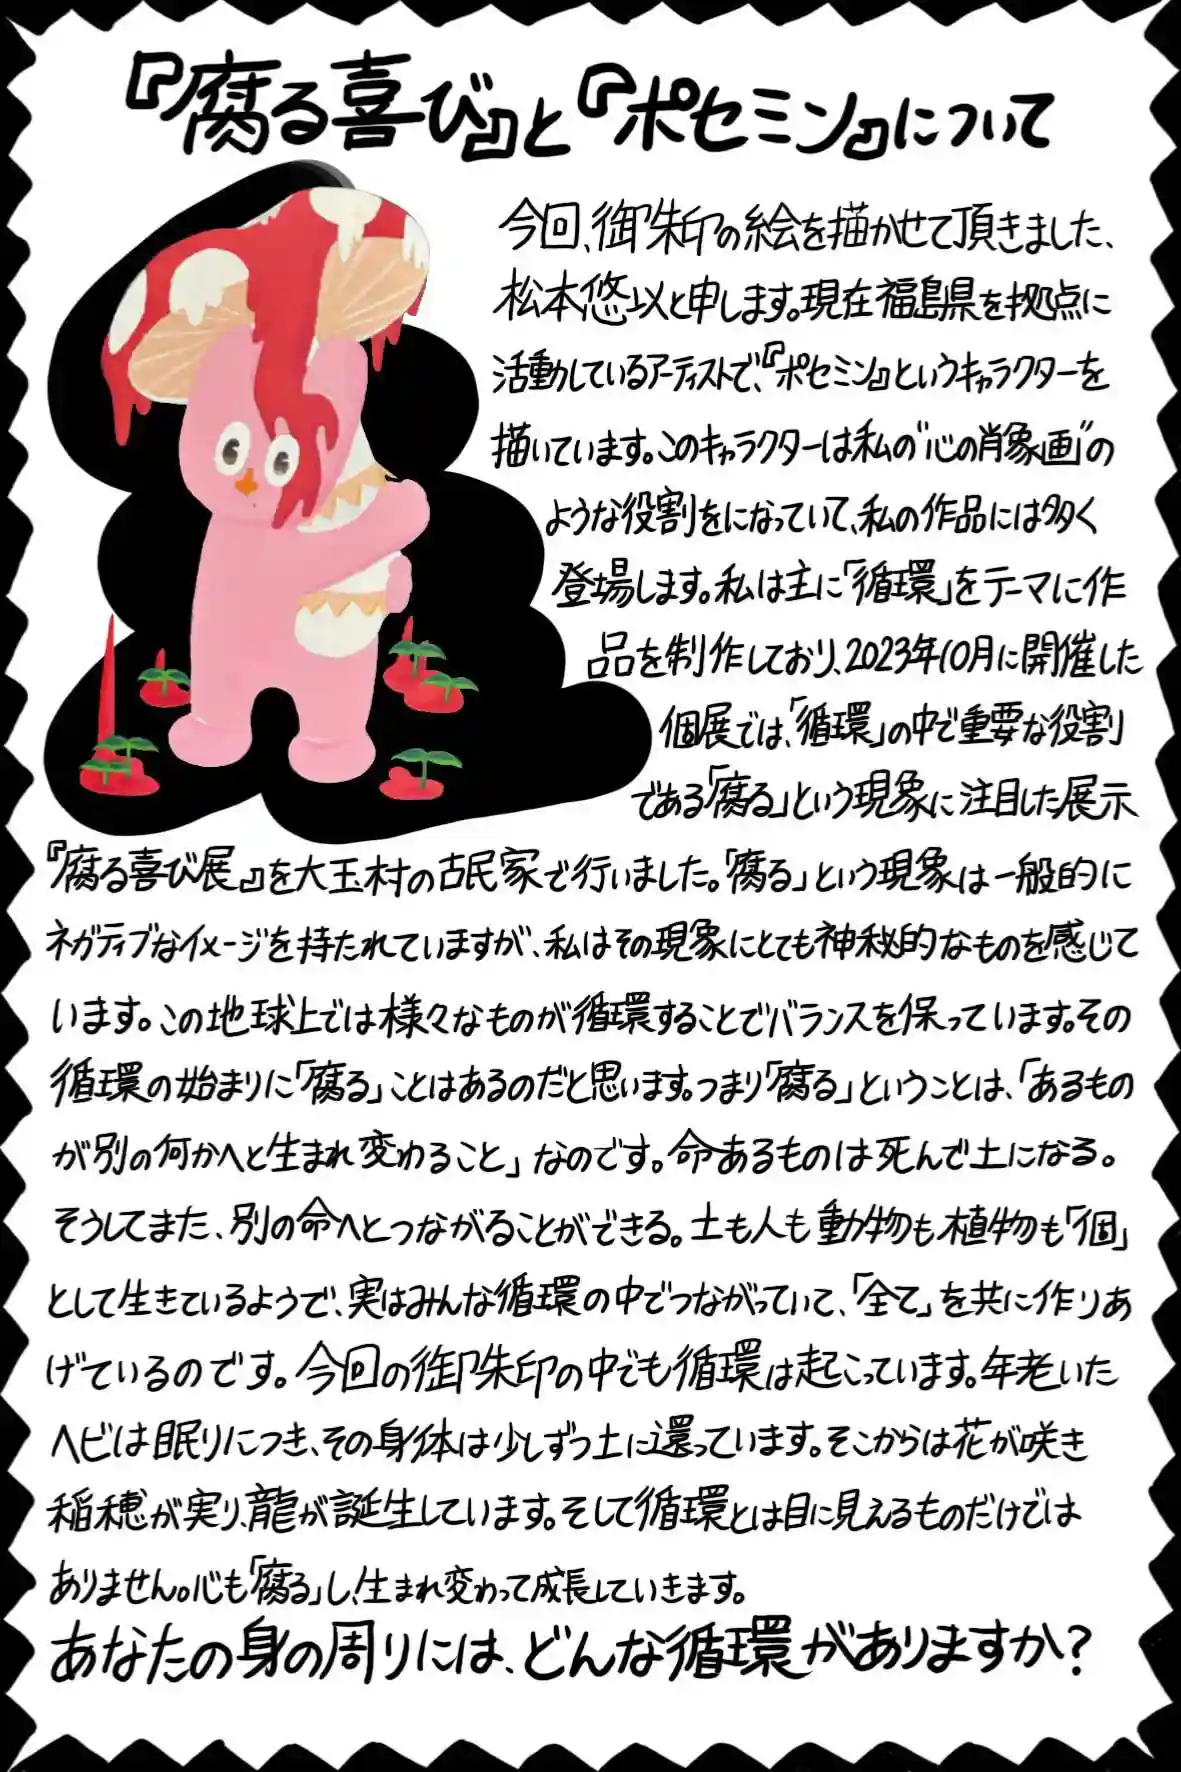 『腐る喜び』と『ポセミン』について
今回、御朱印の絵を描かせて頂きました、
松本悠以と申します。現在福島県を拠点に
活動しているアーティストで、『ポセミン』というキャラクターを
描いています。このキャラクターは私の"心の肖象画"の
ような役割をになっていて、私の作品には多く
登場します。私は主に「循環」をテーマに作
品を制作しており、2023年10月に開催した
個展では、「循環」の中で重要な役割
である「腐る」という現象に注目した展示
『腐る喜び展』を大玉村の古民家で行いました。「腐る」という現象は一般的に
ネガティブなイメージを持たれていますが、私はその現象にとても神秘的なものを感じて
います。この地球上では様々なものが循環することでバランスを保っています。その
循環の始まりに「腐る」ことはあるのだと思います。つまり「腐る」ということは、「あるもの
が別の何かへと生まれ変わること」なのです。命あるものは死んで土になる。
そうしてまた、別の命へとつながることができる。土も人も動物も植物も「個」
として生きているようで、実はみんな循環の中でつながっていて、「全て」を共に作りあ
げているのです。今回の御朱印の中でも循環は起こっています。年老いた
ヘビは眠りにつき、その身体は少しずつ土に還っています。そこからは花が咲き
稲穂が実り、龍が誕生しています。そして循環とは目に見えるものだけでは
ありません。心も「腐る」し、生まれ変わって成長していきます。
あなたの身の周りには、どんな循環がありますか?